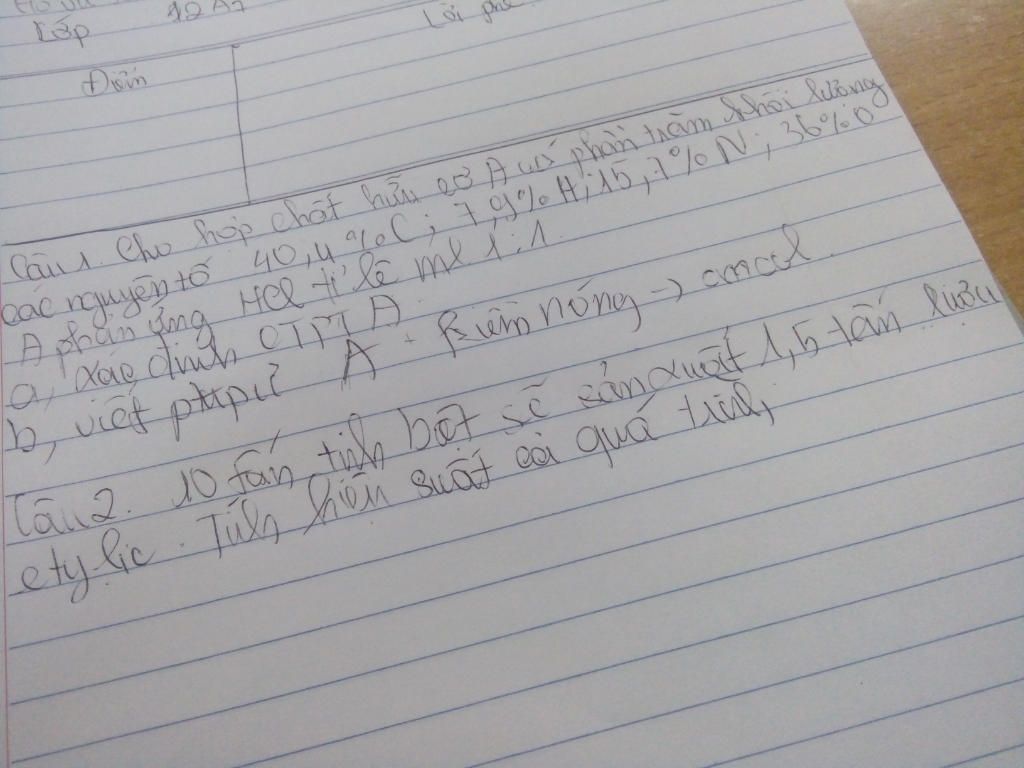 Lớp 12A7
Điểm
Lời phê
Câu 1. Cho hợp chất hữu cơ A có phần trăm khối lượng
các nguyên tố 40,4%C; 7,9%H; 15,7%N; 36%O
A phản ứng HCl tỉ lệ mol 1:1.
a, xác định CTPT A.
b, viết ptpư A + kiềm nóng → ancol.
Câu 2. 10 tấn tinh bột sẽ sản xuất 1,5 tấn rượu
etylic. Tính hiệu suất cả quá trình